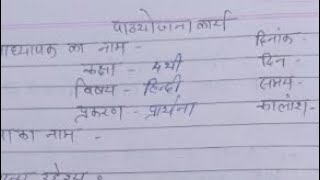 पाठयोजना कार्य
ध्यापक का नाम - दिनांक -
कक्षा - 4थी दिन -
विषय - हिन्दी समय -
प्रकरण - प्रार्थना कालांश -
का नाम -